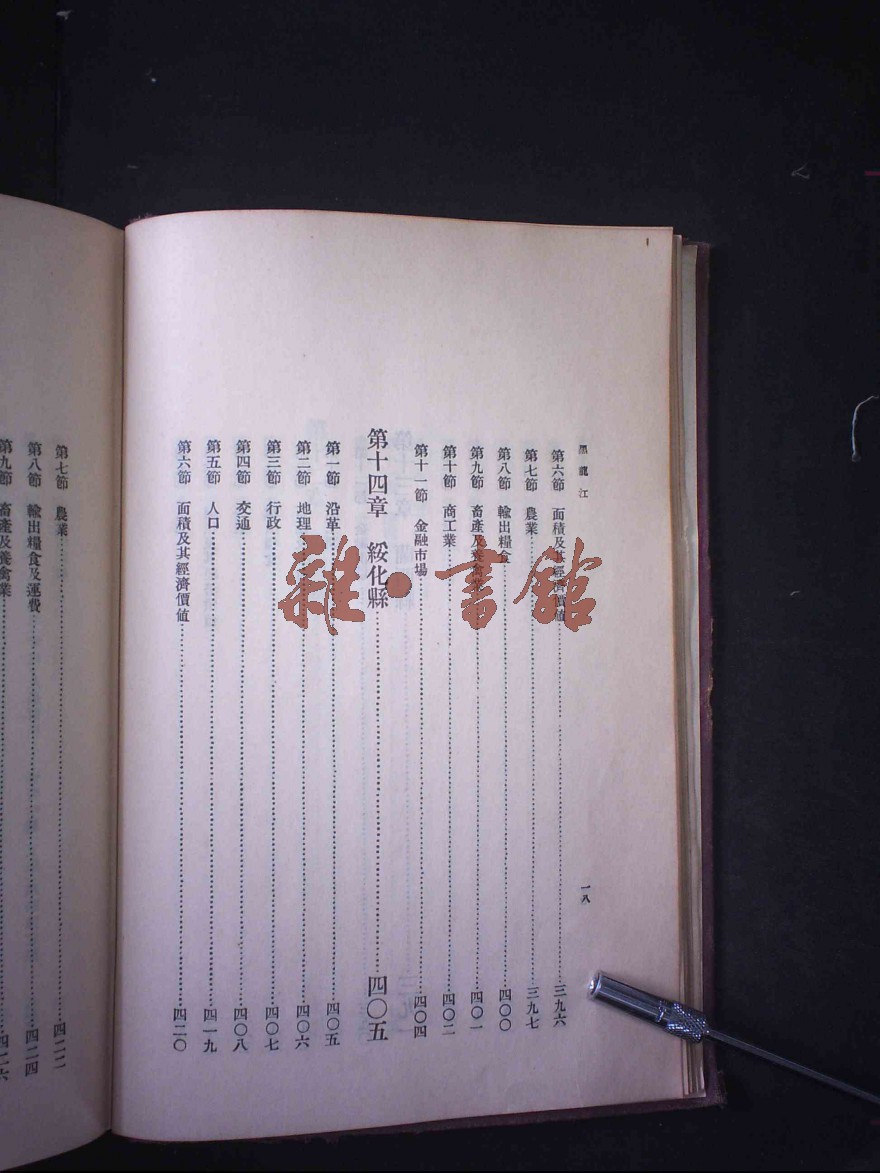 黑龍江
一八
第六節 面積及其經濟價値…………三九六
第七節 農業…………三九七
第八節 輸出糧食…………四〇〇
第九節 畜產及養禽業…………四〇一
第十節 商工業…………四〇二
第十一節 金融市場…………四〇四
第十四章 綏化縣…………四〇五
第一節 沿革…………四〇五
第二節 地理…………四〇六
第三節 行政…………四〇七
第四節 交通…………四〇八
第五節 人口…………四一九
第六節 面積及其經濟價値…………四二〇
第七節 農業…………四二二
第八節 輸出糧食及運費…………四二四
第九節 畜產及養禽業…………四二六
雜·書館